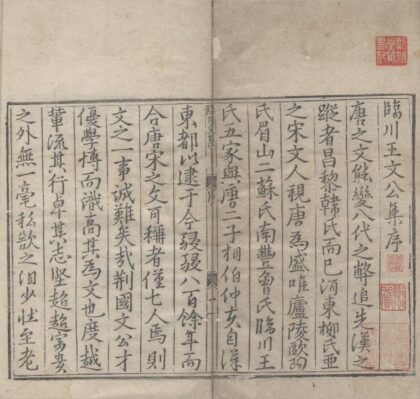 臨川王文公集序
唐之文能變八代之弊追先漢之
蹤者昌黎韓氏而已河東柳氏亞
之宋文人視唐為盛唯廬陵歐陽
氏眉山二蘇氏南豐曾氏臨川王
氏五家與唐二子相伯仲夫自漢
東都以逮于今駸駸八百餘年而
合唐宋之文可稱者僅七人焉則
文之一事誠難矣哉荆國文公才
優學博而識高其為文也度越
輩流其行卓其志堅超越富貴
之外無一毫利欲之汨少壯至老